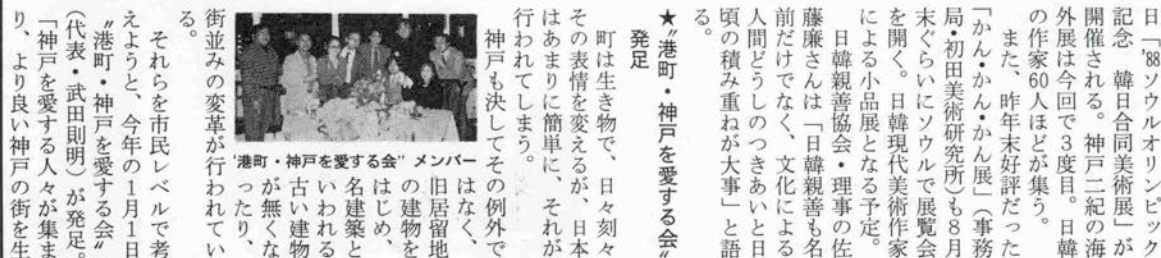 日「'88ソウルオリンピック
記念　韓日合同美術展」が
開催される。神戸二紀の海
外展は今回で3度目。日韓
の作家60人ほどが集う。
また、昨年末好評だった
「かん・かん・かん展」(事務
局・初田美術研究所)も8月
末ぐらいにソウルで展覧会
を開く。日韓現代美術作家
による小品展となる予定。
日韓親善協会・理事の佐
藤廉さんは「日韓親善も名
前だけでなく、文化による
人間どうしのつきあいと日
頃の積み重ねが大事」と語
る。
★〝港町・神戸を愛する会〟
発足
町は生き物で、日々刻々
その表情を変えるが、日本
はあまりに簡単に、それが
行われてしまう。
神戸も決してその例外で
はなく、
旧居留地
の建物を
はじめ、
名建築と
いわれる
古い建物
が無くな
ったり、
街並みの変革が行われてい
る。
"港町・神戸を愛する会"メンバー
それらを市民レベルで考
えようと、今年の1月1日
〝港町・神戸を愛する会〟
(代表・武田則明)が発足。
「神戸を愛する人々が集ま
り、より良い神戸の街を生